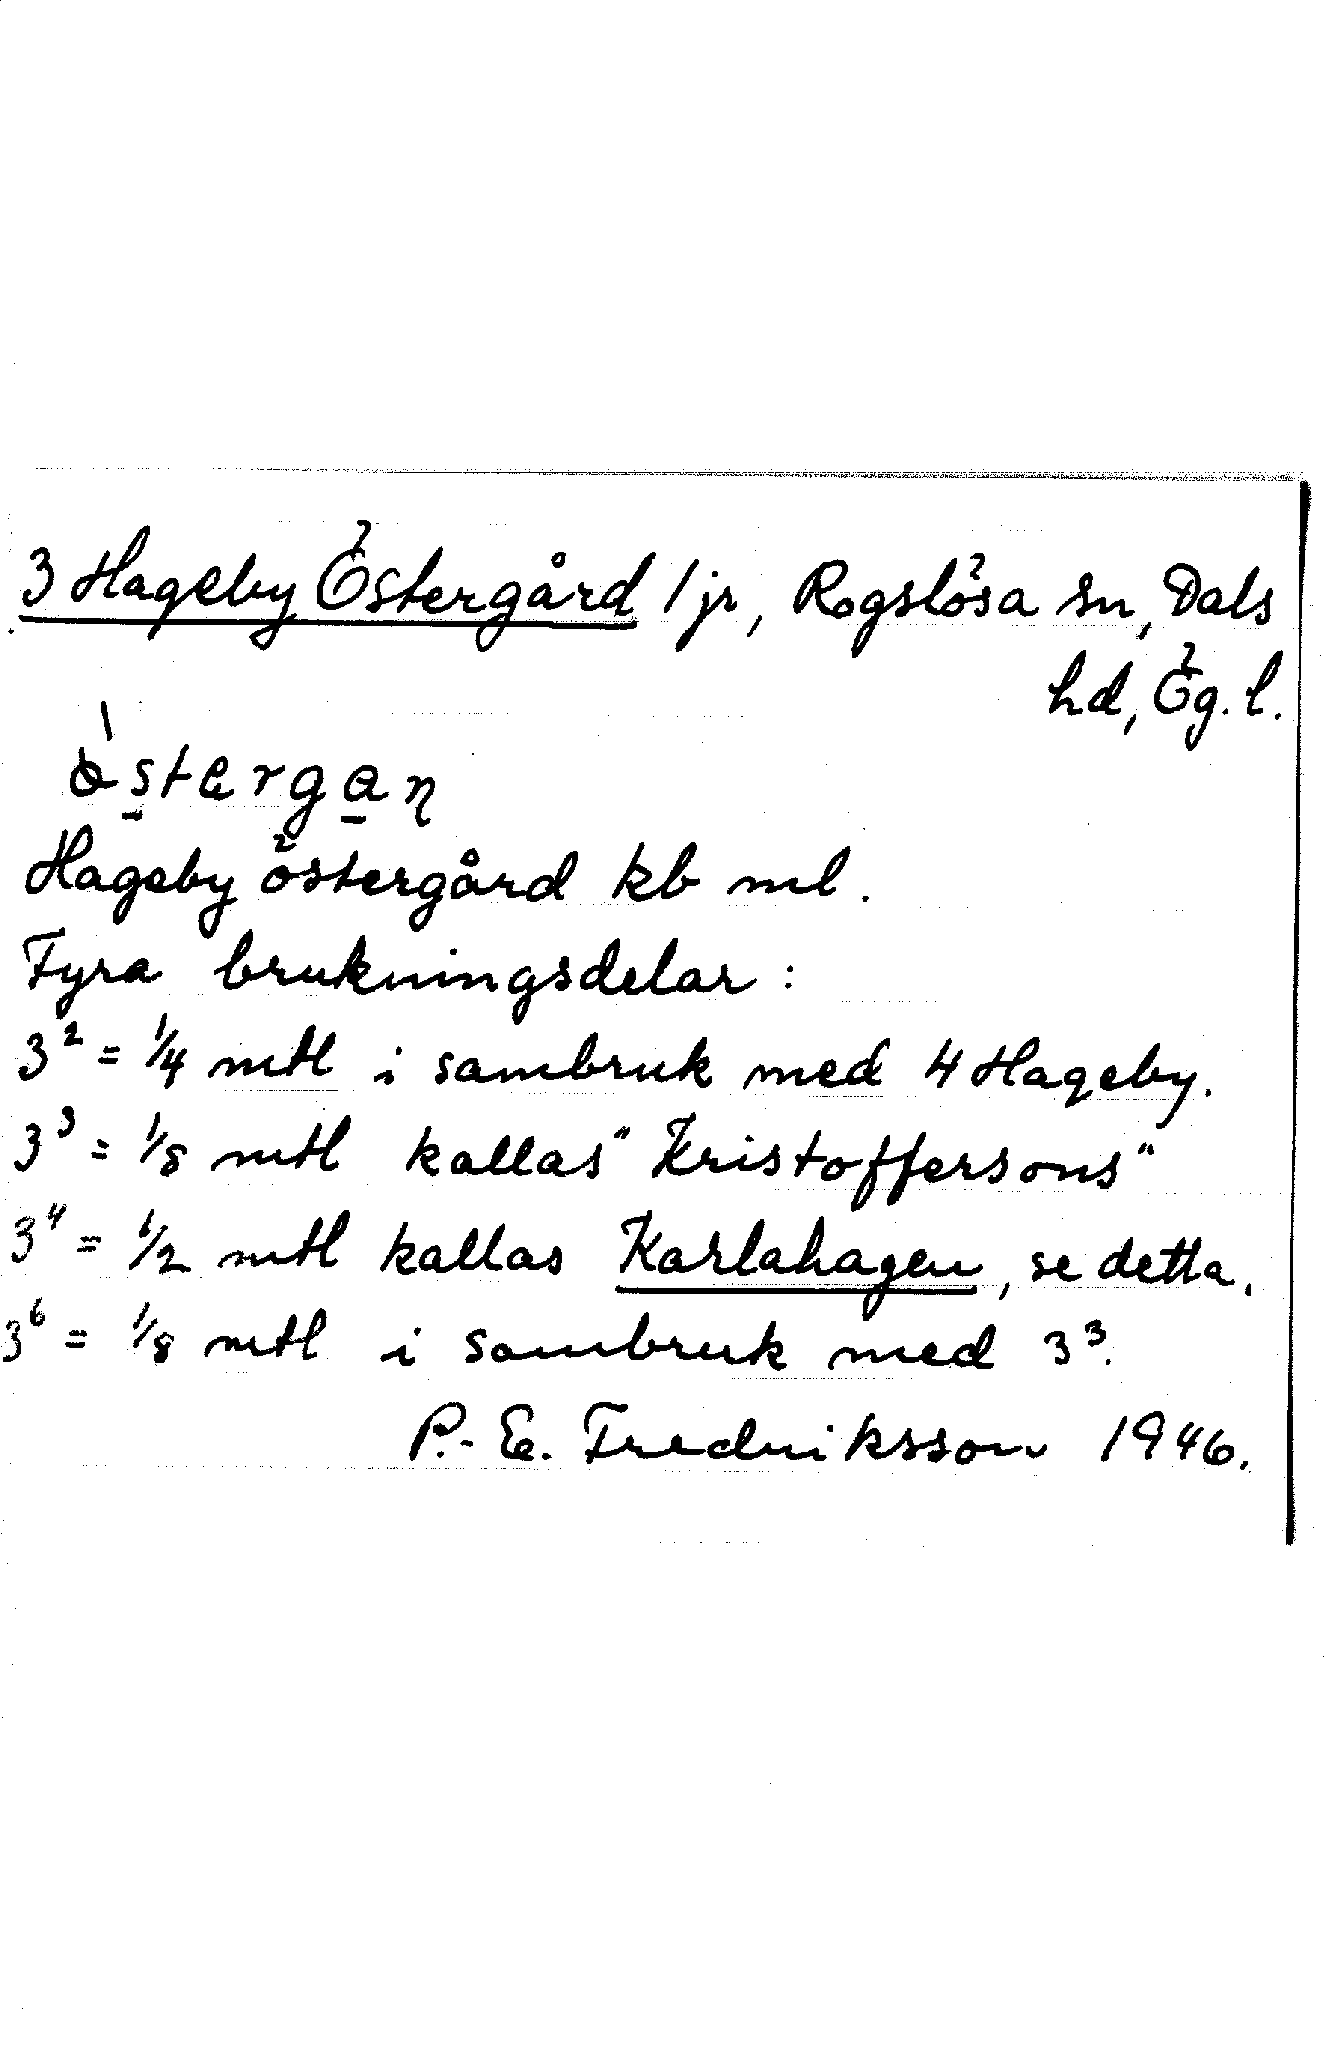 3 Hageby Östergård / jr, Rogslösa sn, Dals
hd, Ög. l.
Hageby östergård kb ml.
Fyra brukningsdelar:
3² = 1/4 mtl i sambruk med 4 Hageby.
3³ = 1/8 mtl kallas "Kristoffersons"
3⁴ = 1/2 mtl kallas Karlahagen, se detta.
3⁶ = 1/8 mtl i sambruk med 3³.
P.-E. Fredriksson 1946.